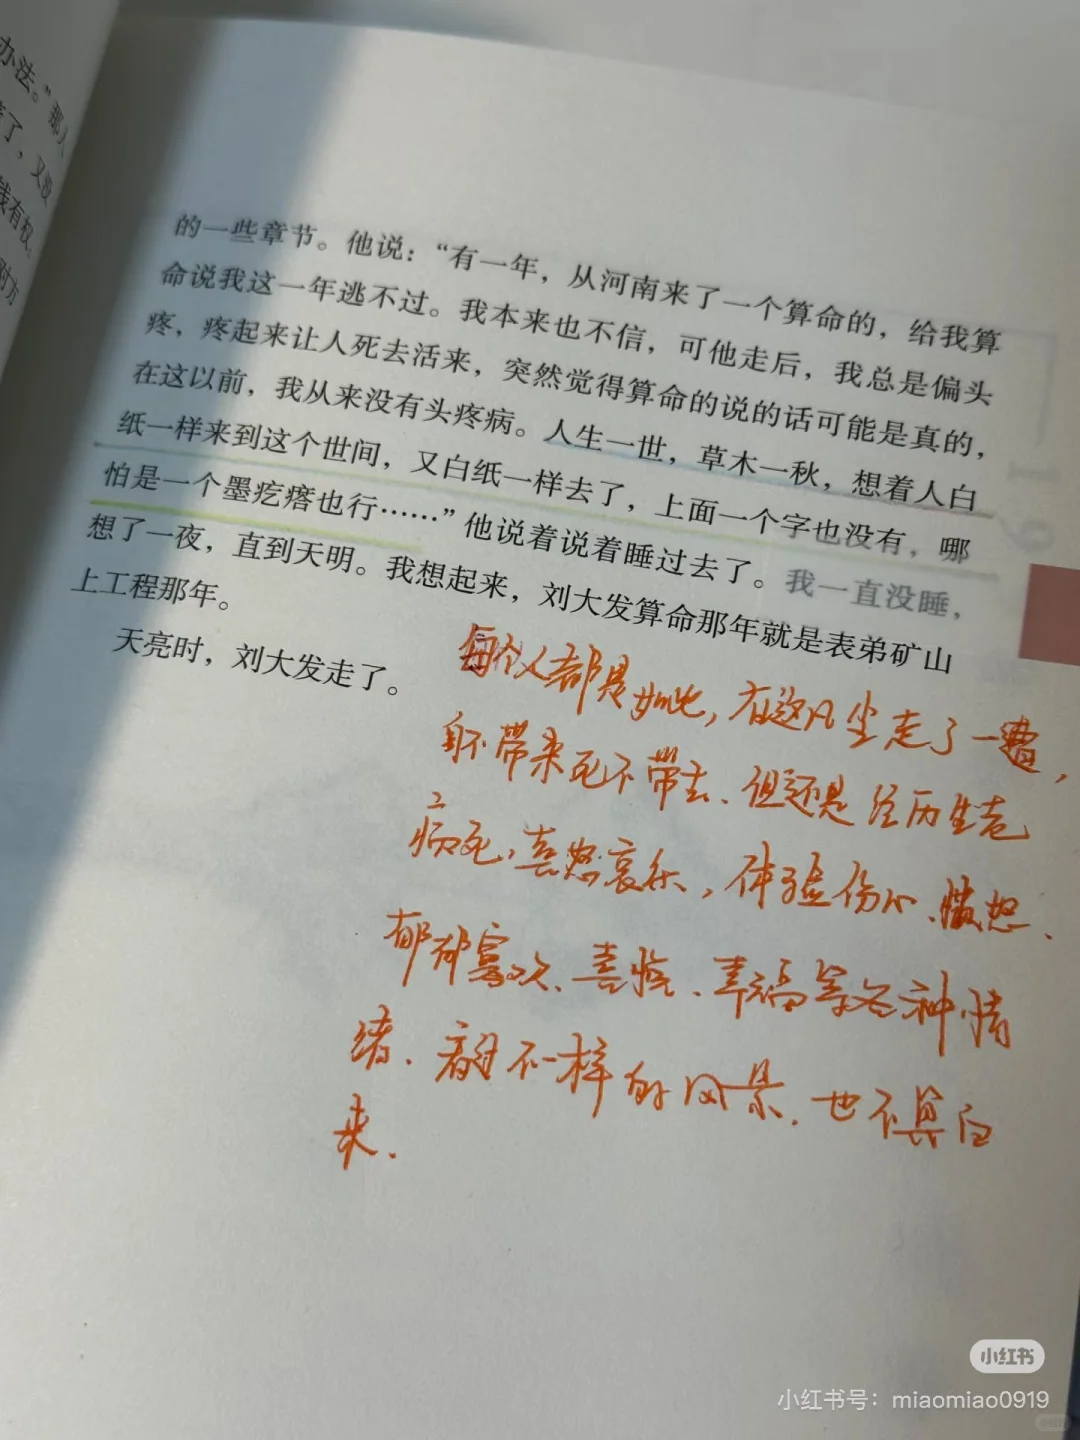 办法。”那人
了，又没
钱有权，
对方
的一些章节。他说：“有一年，从河南来了一个算命的，给我算
命说我这一年逃不过。我本来也不信，可他走后，我总是偏头
疼，疼起来让人死去活来，突然觉得算命的说的话可能是真的，
在这以前，我从来没有头疼病。人生一世，草木一秋，想着人白
纸一样来到这个世间，又白纸一样去了，上面一个字也没有，哪
怕是一个墨疙瘩也行……”他说着说着睡过去了。我一直没睡，
想了一夜，直到天明。我想起来，刘大发算命那年就是表弟矿山
上工程那年。
天亮时，刘大发走了。
每个人都是如此，在这凡尘走了一遭，
不带来死不带去、但还是经历生老
病死，喜怒哀乐，体验伤心、愤怒、
郁郁寡欢、喜悦、幸福等各种情
绪、看过不一样的风景、也不算白
来.
小红书
小红书号：miaomiao0919